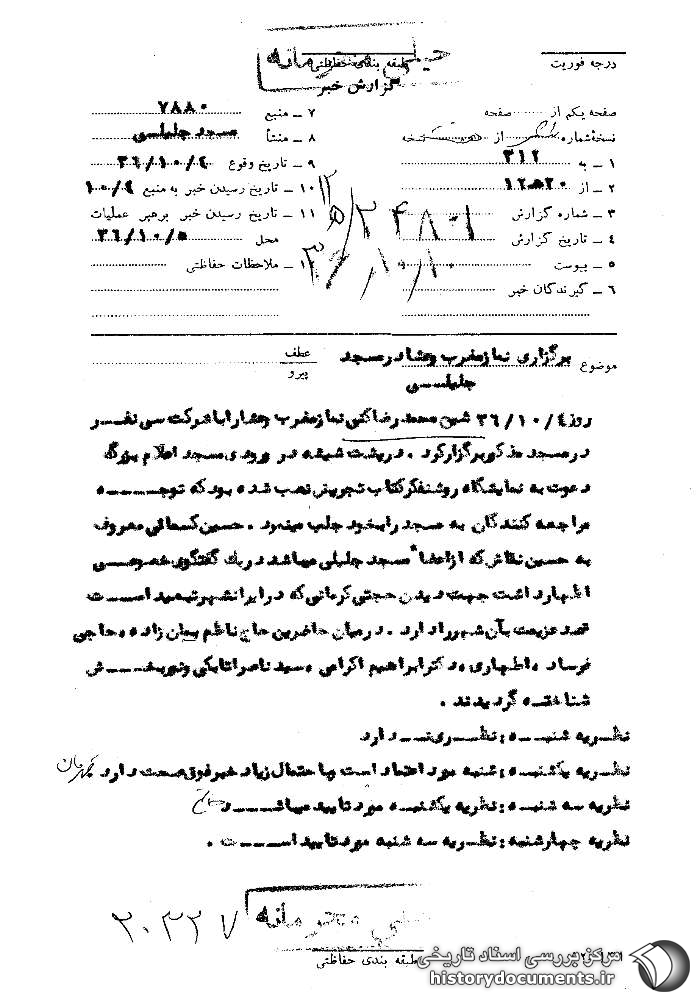 خیلی محرمانه
طبقه بندی حفاظتی
گزارش خبر
درجه فوریت
صفحه یکم از صفحه
نسخه شماره از نسخه
۱ ــ به ۳۱۲
۲ ــ از ۲۰ ه‍ ۱۲
۳ ــ شماره گزارش
۴ ــ تاریخ گزارش
۵ ــ پیوست
۶ ــ گیرندگان خبر
۷ ــ منبع ۷۸۸۰
۸ ــ منشأ مسجد جلیلی
۹ ــ تاریخ وقوع ۳۶/۱۰/۴
۱۰ ــ تاریخ رسیدن خبر به منبع ۱۰/۴
۱۱ ــ تاریخ رسیدن خبر برهبر عملیات
محل ۳۶/۱۰/۵
۱۲ ــ ملاحظات حفاظتی
موضوع برگزاری نماز مغرب وعشا در مسجد
جلیلــی
عطف
پیرو
روز ۳۶/۱۰/۴ شیخ محمد رضا کنی نماز مغرب وعشا را با شرکت سی نفــر
در مسجد مذکور برگزار کرد . در پشت شیشه در ورودی مسجد اعلام بزرگ
دعوت به نمایشگاه روشنفکر کتاب تجریش نصب شده بود که توجــــه
مراجعه کنندگان به مسجد را بخود جلب مینمود . حسین کسمائی معروف
به حسین نقاش که از اعضاء مسجد جلیلی میباشد در یک گفتگوی خصوصــی
اظهار داشت جهت دیدن حجتی کرمانی که در ایرانشهر تبعید اســـت
قصد عزیمت بآن شهر را دارد . در میان حاضرین حاج ناظم پیمان زاده ، حاجی
فرساد ، اظهاری ، دکتر ابراهیم اکرامی ، سید ناصر اتابکی
شناخته گردیدند .
نظریه شنبـه : نظــری نــدارد
نظریه یکشنبه : شنبه مورد اعتماد است با احتمال زیاد خبر فوق صحت دارد
نظریه سه شنبه : نظریه یکشنبه مورد تایید میباشـــد
نظریه چهارشنبه : نظــریه سه شنبه مورد تایید اســـت .
خیلی محرمانه
طبقه بندی حفاظتی
۲۰۳۲۷
مرکز بررسی اسناد تاریخی
historydocuments.ir